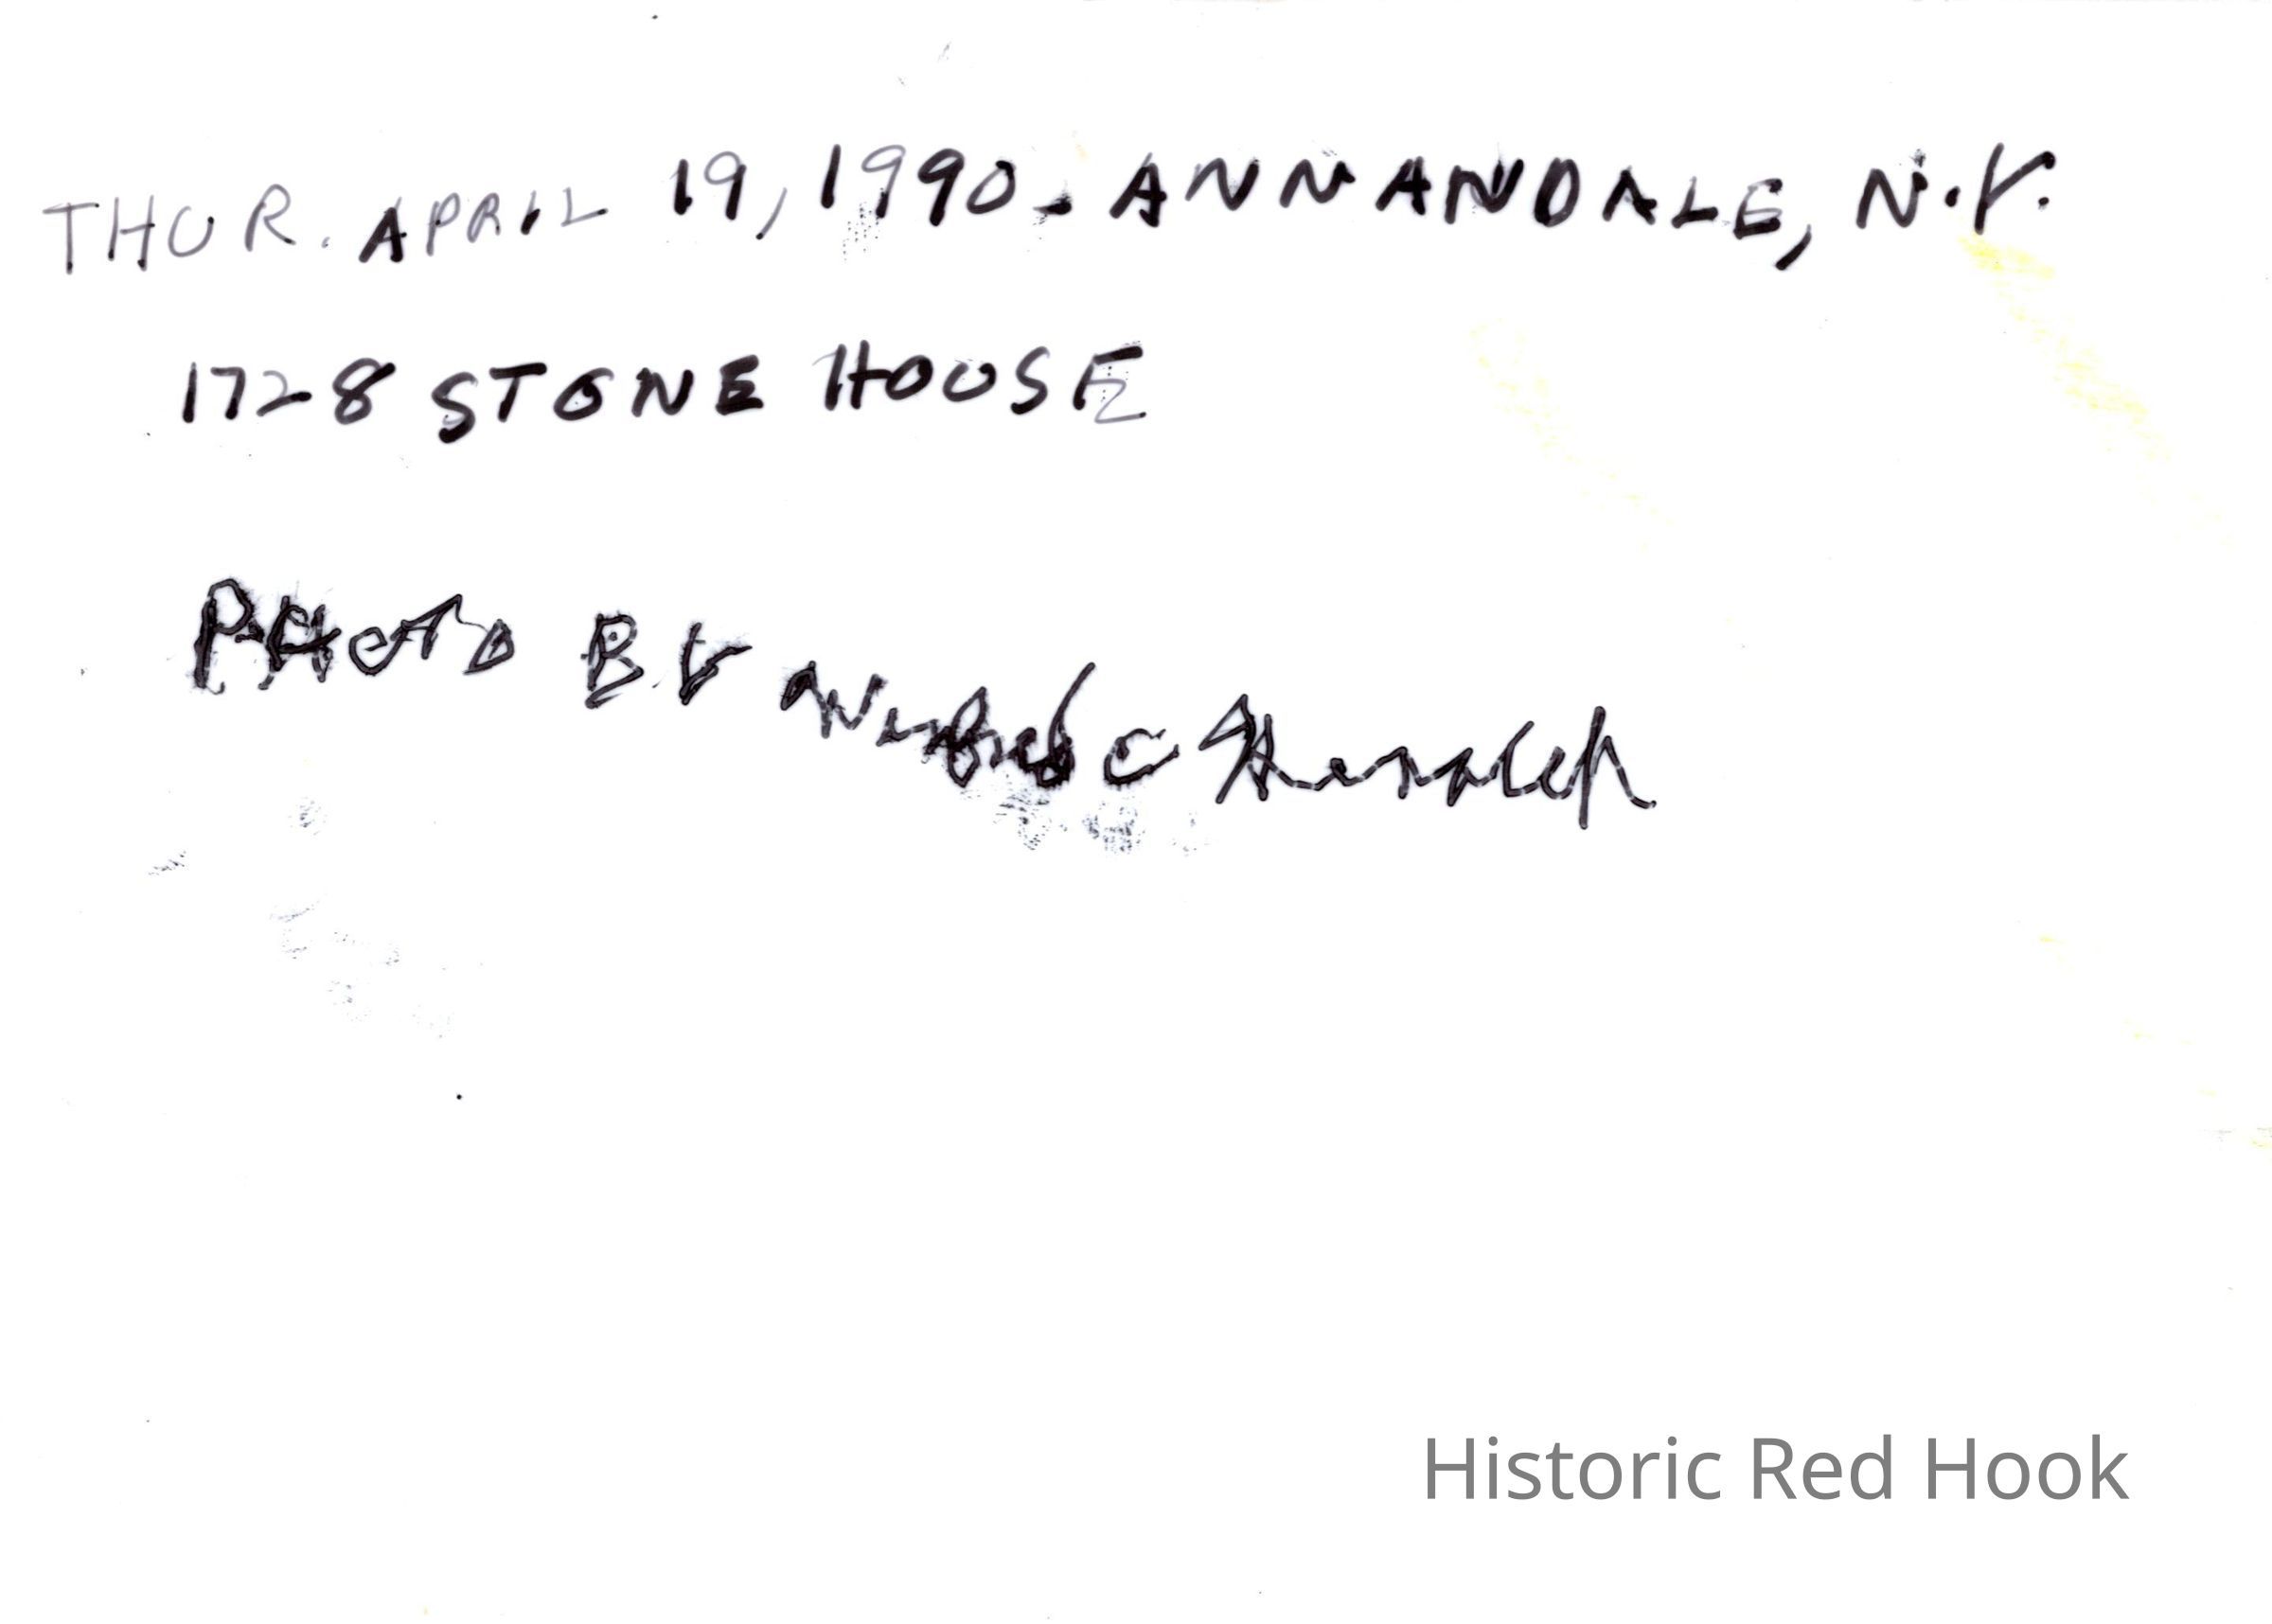 THUR. APRIL 19, 1990 - ANNANDALE, N.Y.
1728 STONE HOUSE
PHOTO BY C
Historic Red Hook